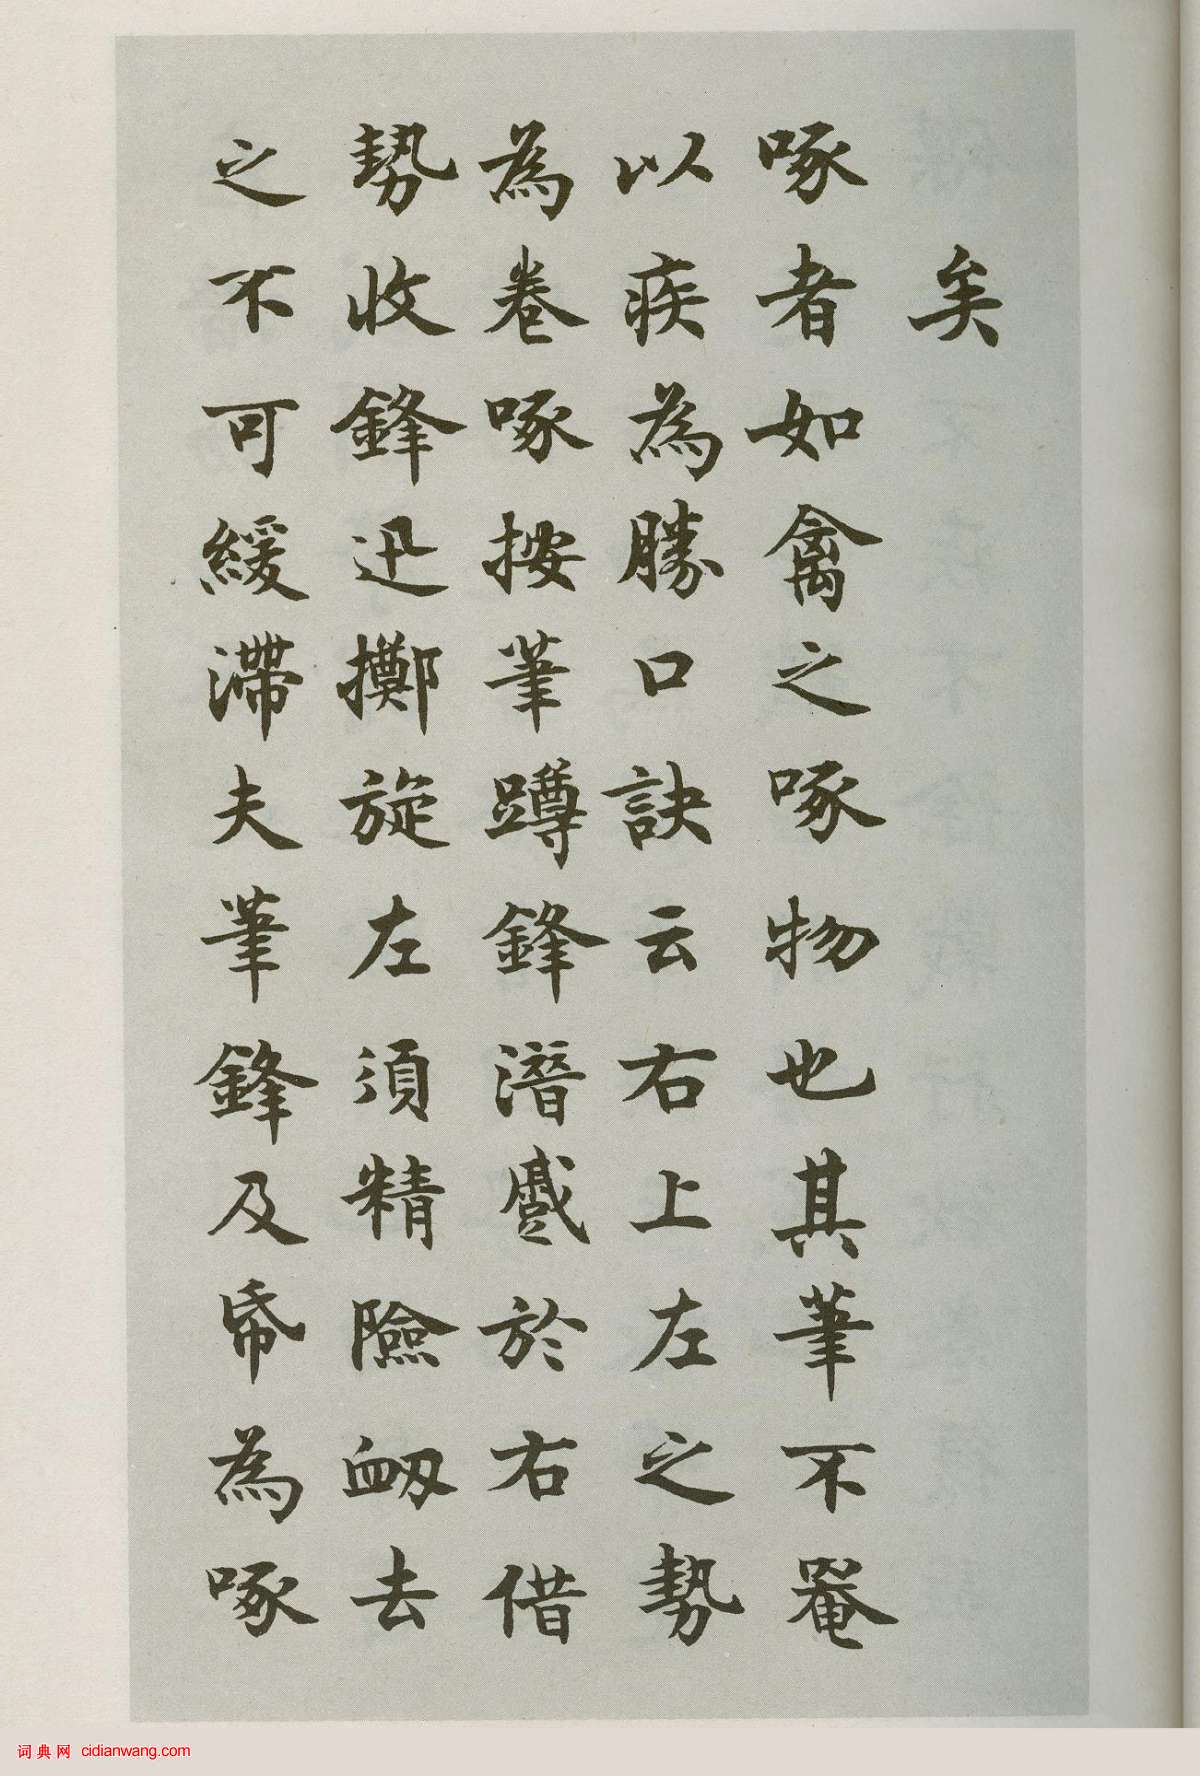 矣
啄者如禽之啄物也其筆不罨
以疾為勝口訣云右上左之勢
為卷啄按筆蹲鋒潛蹙於右借
勢收鋒迅擲旋左須精險衂去
之不可緩滯夫筆鋒及帋為啄
词典网 cidianwang.com